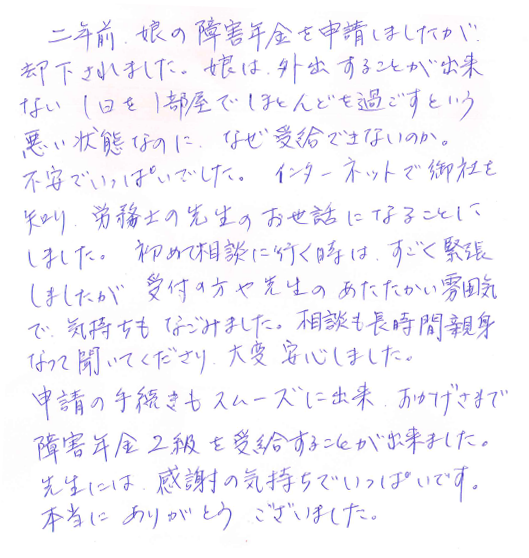 二年前、娘の障害年金を申請しましたが、
却下されました。娘は、外出することが出来
ない 1日を1部屋でほとんどを過ごすという
悪い状態なのに、なぜ受給できないのか。
不安でいっぱいでした。 インターネットで御社を
知り、労務士の先生のお世話になることに
しました。 初めて相談に行く時は、すごく緊張
しましたが 受付の方や先生のあたたかい雰囲気
で、気持ちもなごみました。相談も長時間親身
なって聞いてくださり、大変安心しました。
申請の手続きもスムーズに出来、おかげさまで
障害年金2級を受給することが出来ました。
先生には、感謝の気持ちでいっぱいです。
本当に ありがとう ございました。